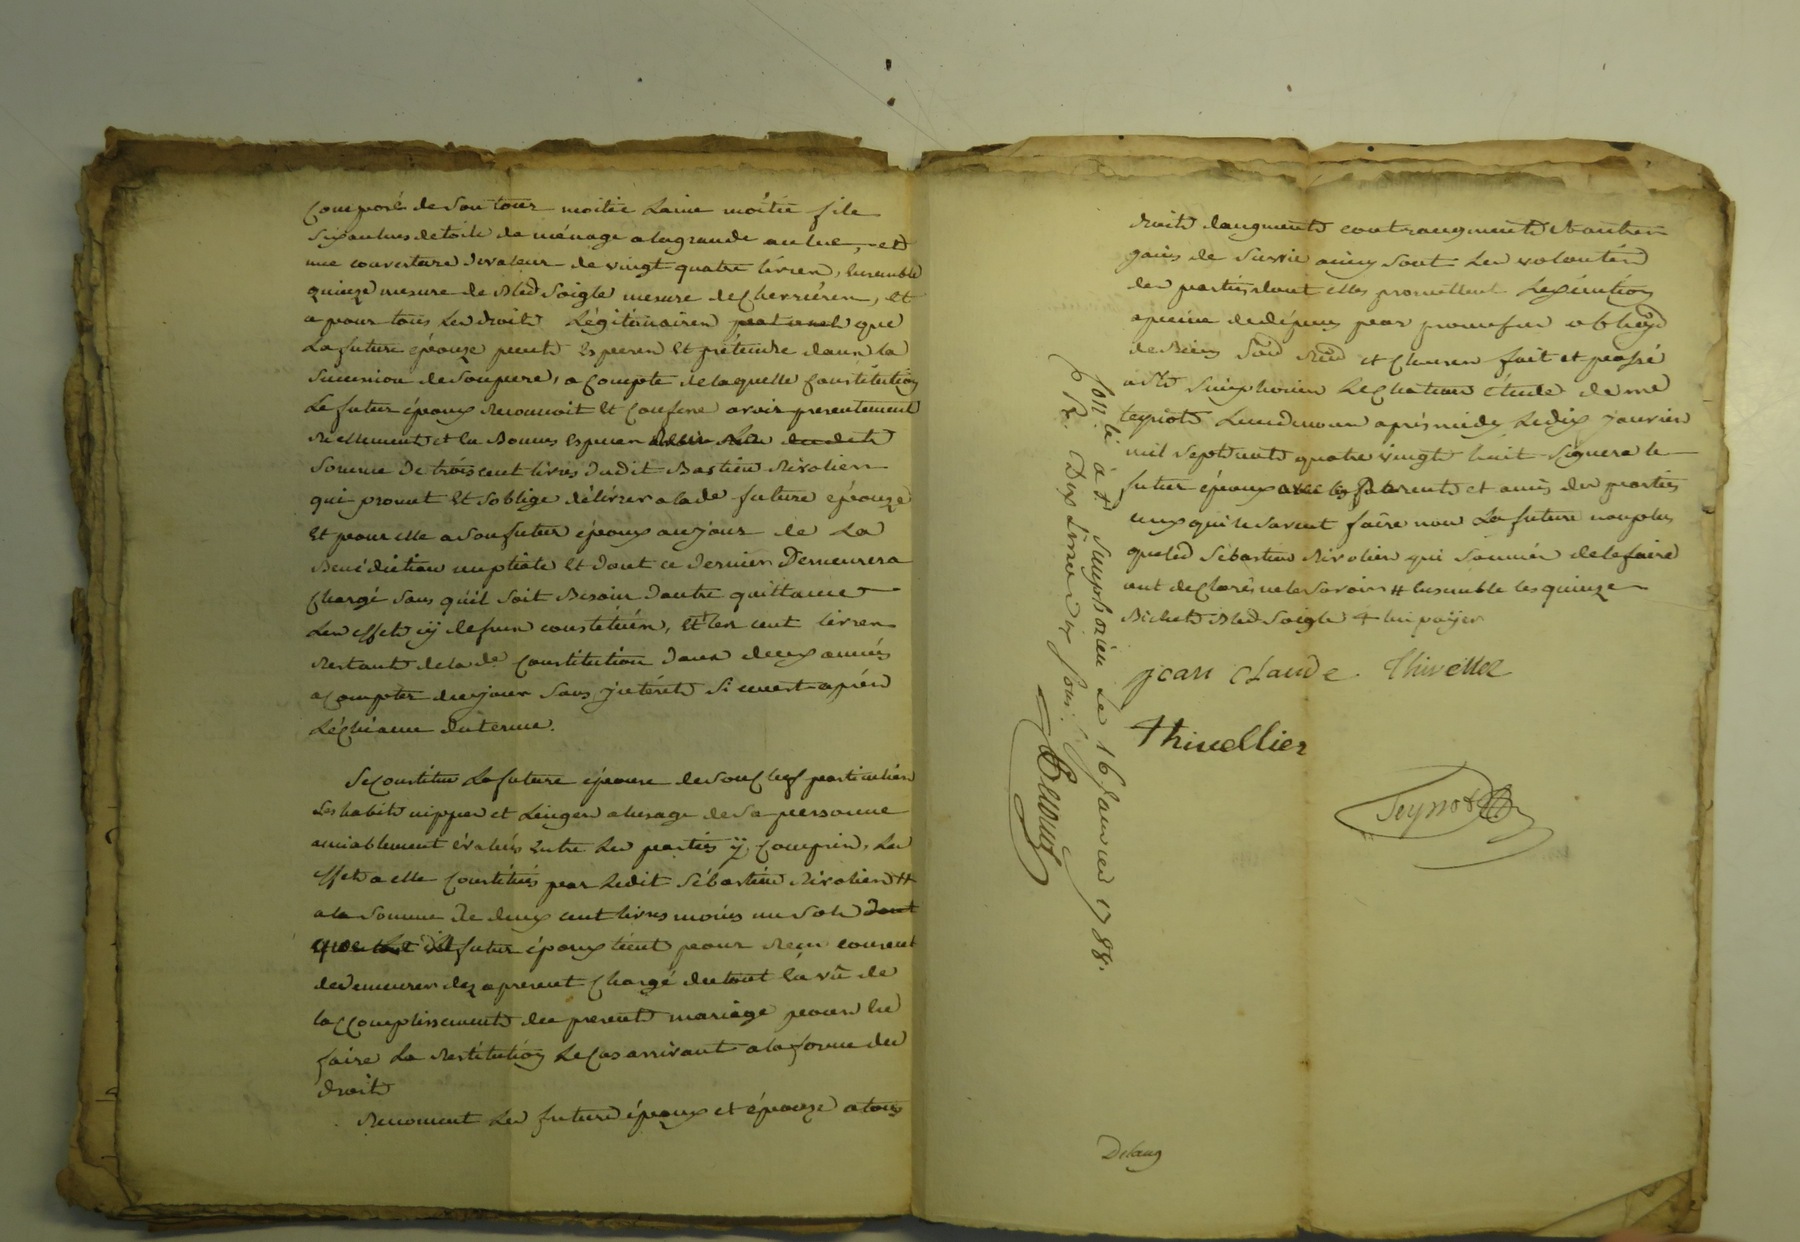 Composés de son tour moitié Laine moitié file
Six aulnes de toile de ménage a la grande aulne, et
une couverture de valeur de vingt quatre livres, Ensemble
quinze mesure de Bled Soigle mesure de Cherriéres, Et
a pour tous Les droits Légitimaires que
La future épouze peut Esperer Et prétendre dans la
Succession de Son pere, a Compte de laquelle Constitution
Le futur époux Reconnoit Et Confesse avoir presentement
Réellement et En Bonnes Especes
Somme de trois cent livres dudit Bastien Rivolier
qui promet Et S'oblige délivrer a lade future epouze
Et pour elle a Son futur époux au jour de La
Bénédiction nuptiale Et dont ce dernier Demeurera
Chargé Sans qu'il Soit Besoin d'autre quittance
Les effets cy dessus constitués, Et Les cent livres
Restant de lade Constitution dans deux années
a Compter du jour Sans jntérêts Si ce n'est aprés
L'échéance du terme.
Se Constitue La future épouze de Son Chef particulier
Ses habits nippes et Linges a lusage de Sa personne
amiablement évalués Entre Les parties ÿ Compris, Les
effets a elle Constitués par Ledit Sébastien Rivolier #
a la Somme de deux cent livres moins un Sol dont
futur époux tient pour Reçu consent
de demeurer dez a present Chargé du tout En vû de
laCComplissement du present mariage pour En
faire La Restitution Le Cas arrivant a la forme du
droit
Renoncent Les futurs époux et épouze a tous
droits d'augments contraugments Et autres
gains de Survie ainsy Sont Les volontés
des parties dont elles promettent Lexécution
a peine de dépens par promesses obligõn
de Biens Soud Rend et Clauses fait et passé
a St Simphorien Le Chateau étude de me
teynot L'un de nous après midy Le dix janvier
mil Sept cents quatre vingt huit Signera le
futur époux avec les parents et amis des parties
ceux qui le Savent faire non La future non plus
que led Sébastien Rivolier qui Sommés de le faire
ont declaré ne le Savoir # Ensemble les quinze
Bichets Bled Soigle + lui payer
jean claude Thivellier
Thivellier
Teynot
Con.lé à St Simphorien Le 16 Janvier 1788.
R. Dix Livres dix sous.
Delang